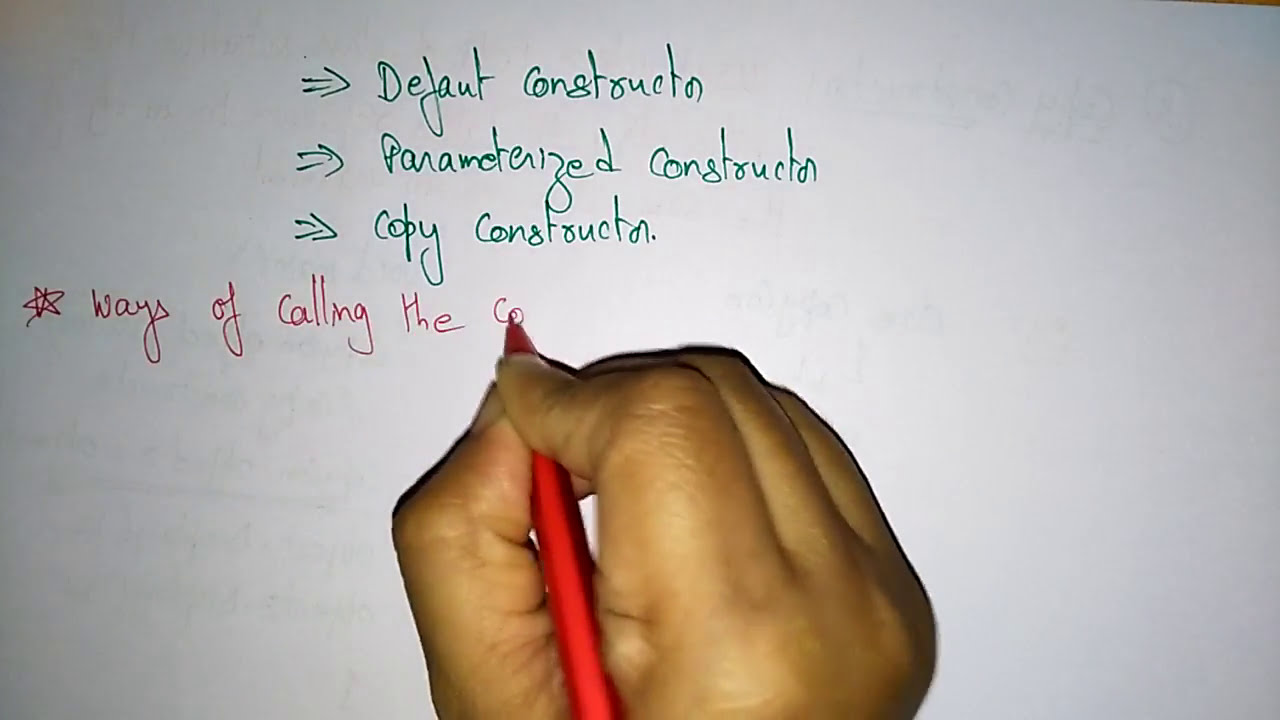 ⇒ Defaut Constructor
⇒ Parameterized Constructor
⇒ Copy Constructor.
☆ Ways of Calling the Co